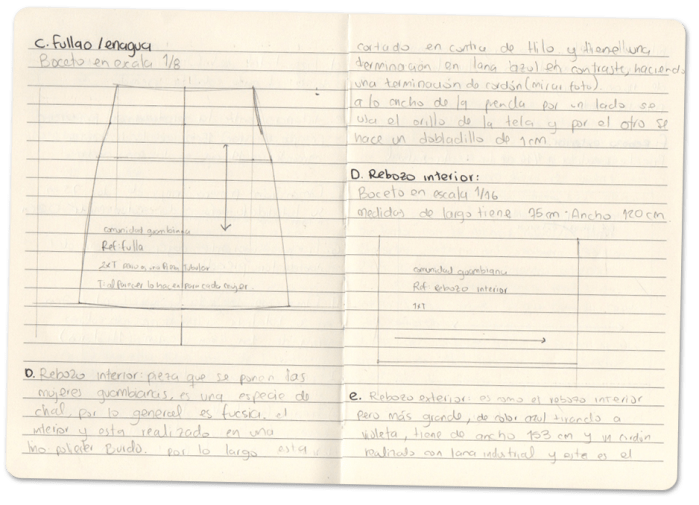 C. Fullao / enagua
Boceto en escala 1/8
comunidad guambiana
Ref: fulla
2xT
T: al parecer lo hacen para cada mujer.
D. Rebozo interior: pieza que se ponen las
mujeres guambianas, es una especie de
chal, por lo general es fucsia, el
interior y esta realizado en una
burdo. por lo largo esta
cortado en contra de Hilo y tiene una
terminacion en lana azul en contraste, haciendo
una terminación de cordón (mirar foto).
a lo ancho de la prenda por un lado se
usa el orillo de la tela y por el otro se
hace un dobladillo de 1cm.
D. Rebozo interior:
Boceto en escala 1/16
medidas de largo tiene 75cm - Ancho 120 cm
comunidad guambiana
Ref: rebozo interior
1xT
e. Rebozo exterior: es como el rebozo interior
pero más grande, de color azul tirando a
violeta, tiene de ancho 153 cm y un cordón
realizado con lana industrial y este es el